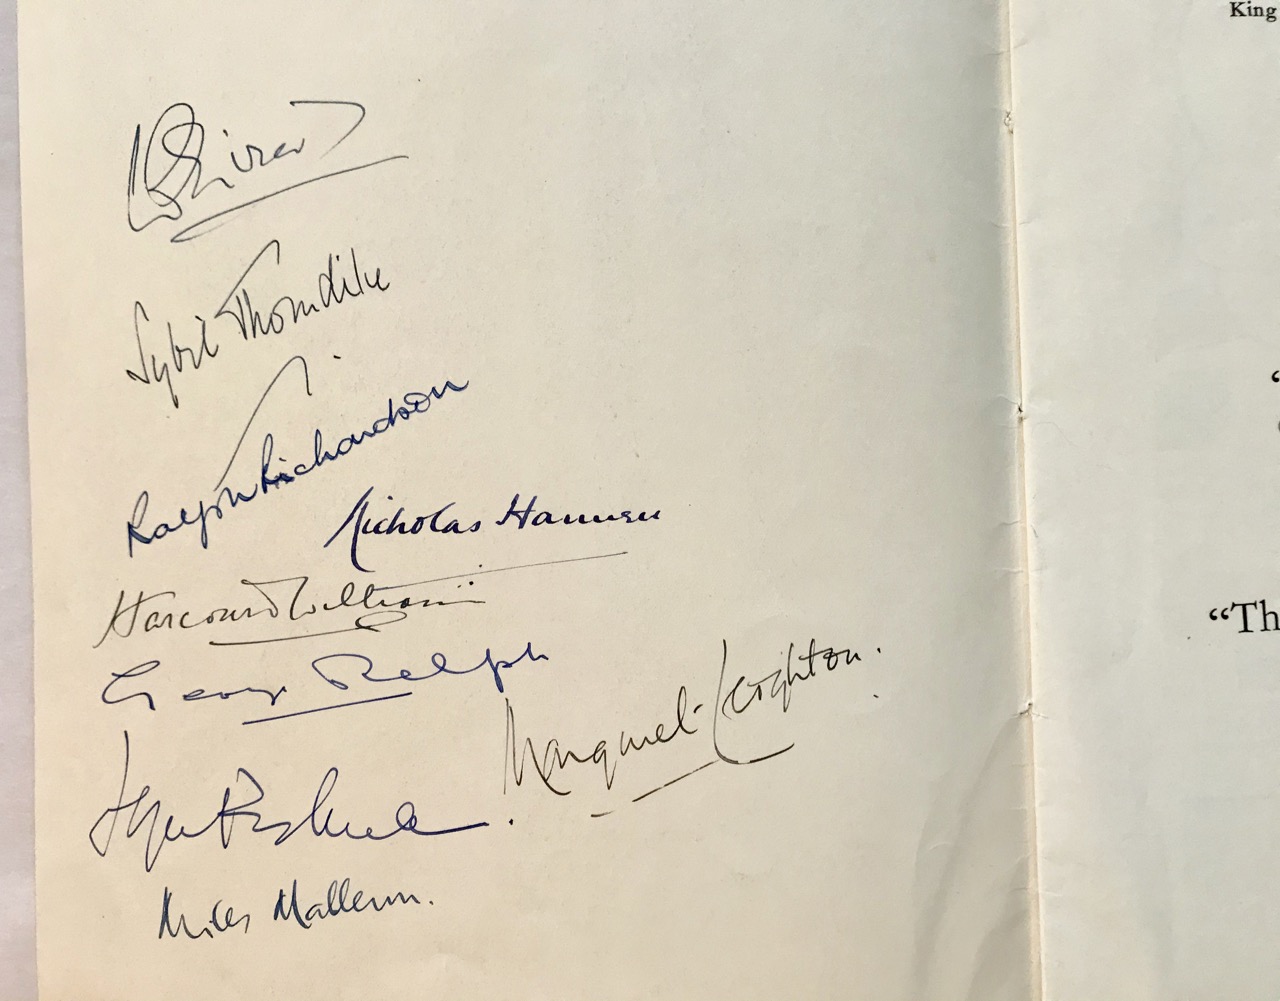 King
Sybil Thorndike
Ralph Richardson
Nicholas Hannen
Harcourt Williams
George Ralph
Margaret Leighton.
Miles Malleson.
“
“Th